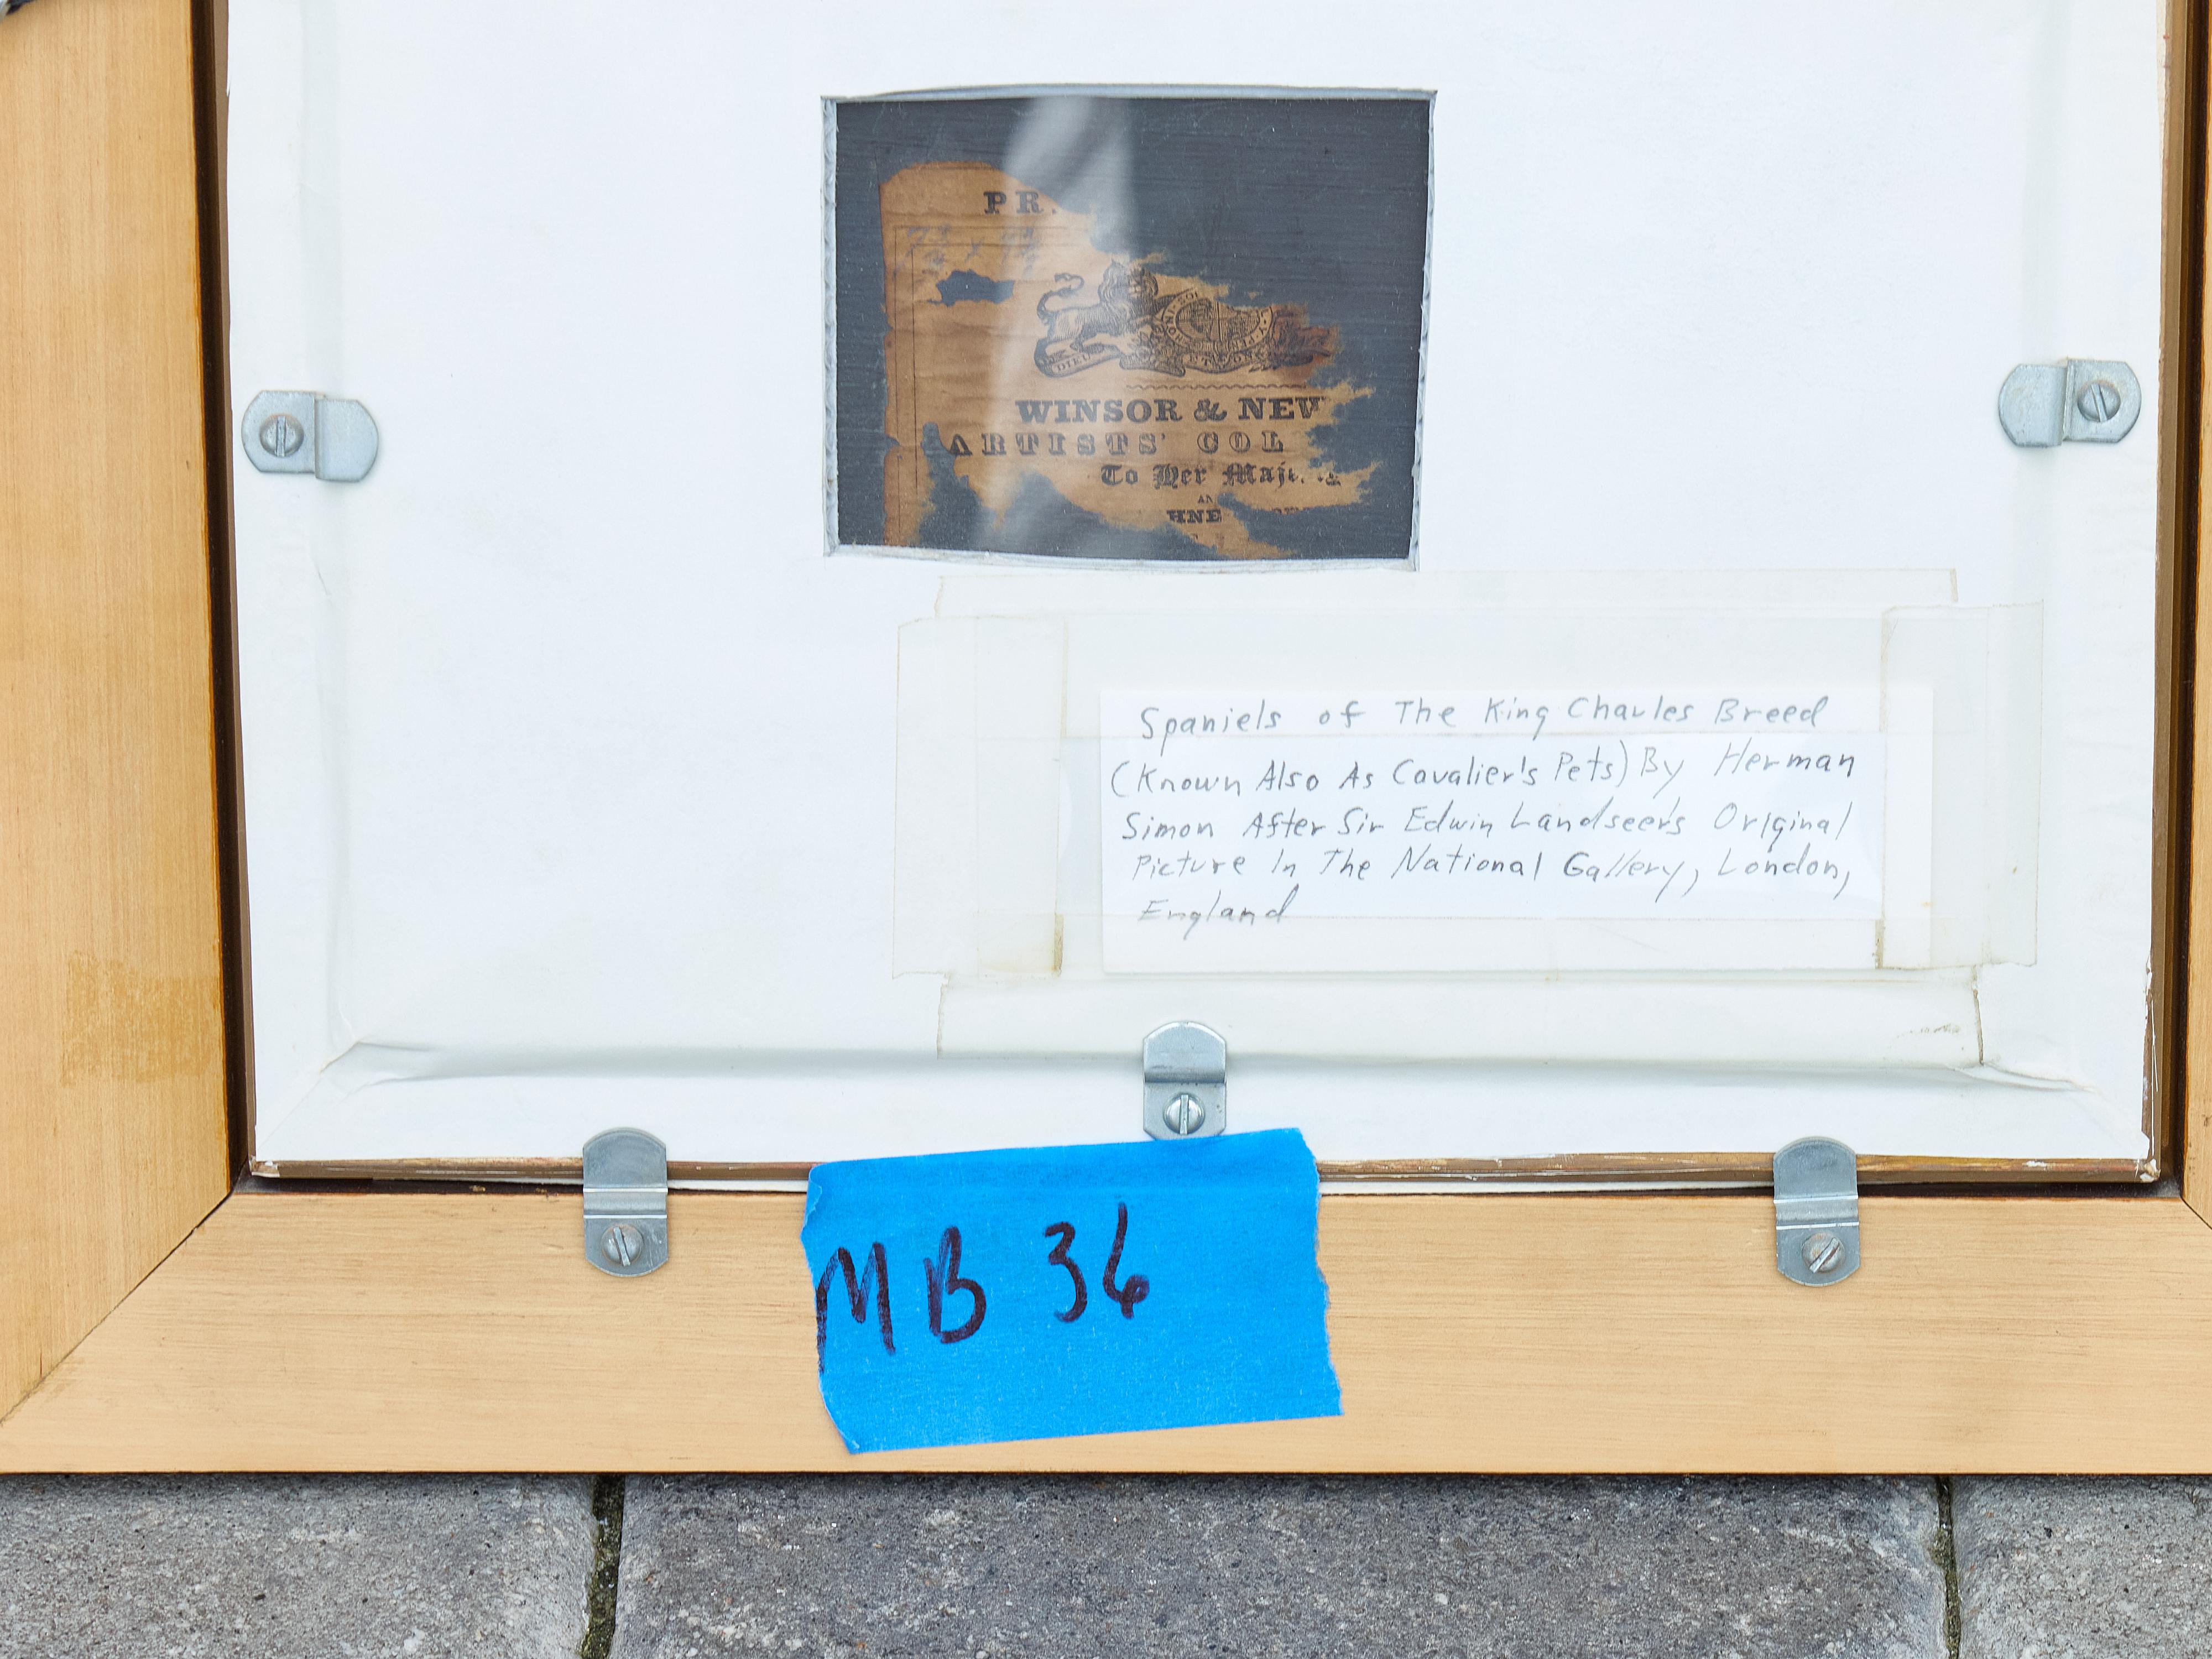 PR
DIEU
WINSOR & NEW
ARTISTS' COL
To Her Maje
AN
HNE
Spaniels of The King Charles Breed
(Known Also As Cavalier's Pets) By Herman
Simon After Sir Edwin Landseer's Original
Picture In The National Gallery, London,
England
MB 36